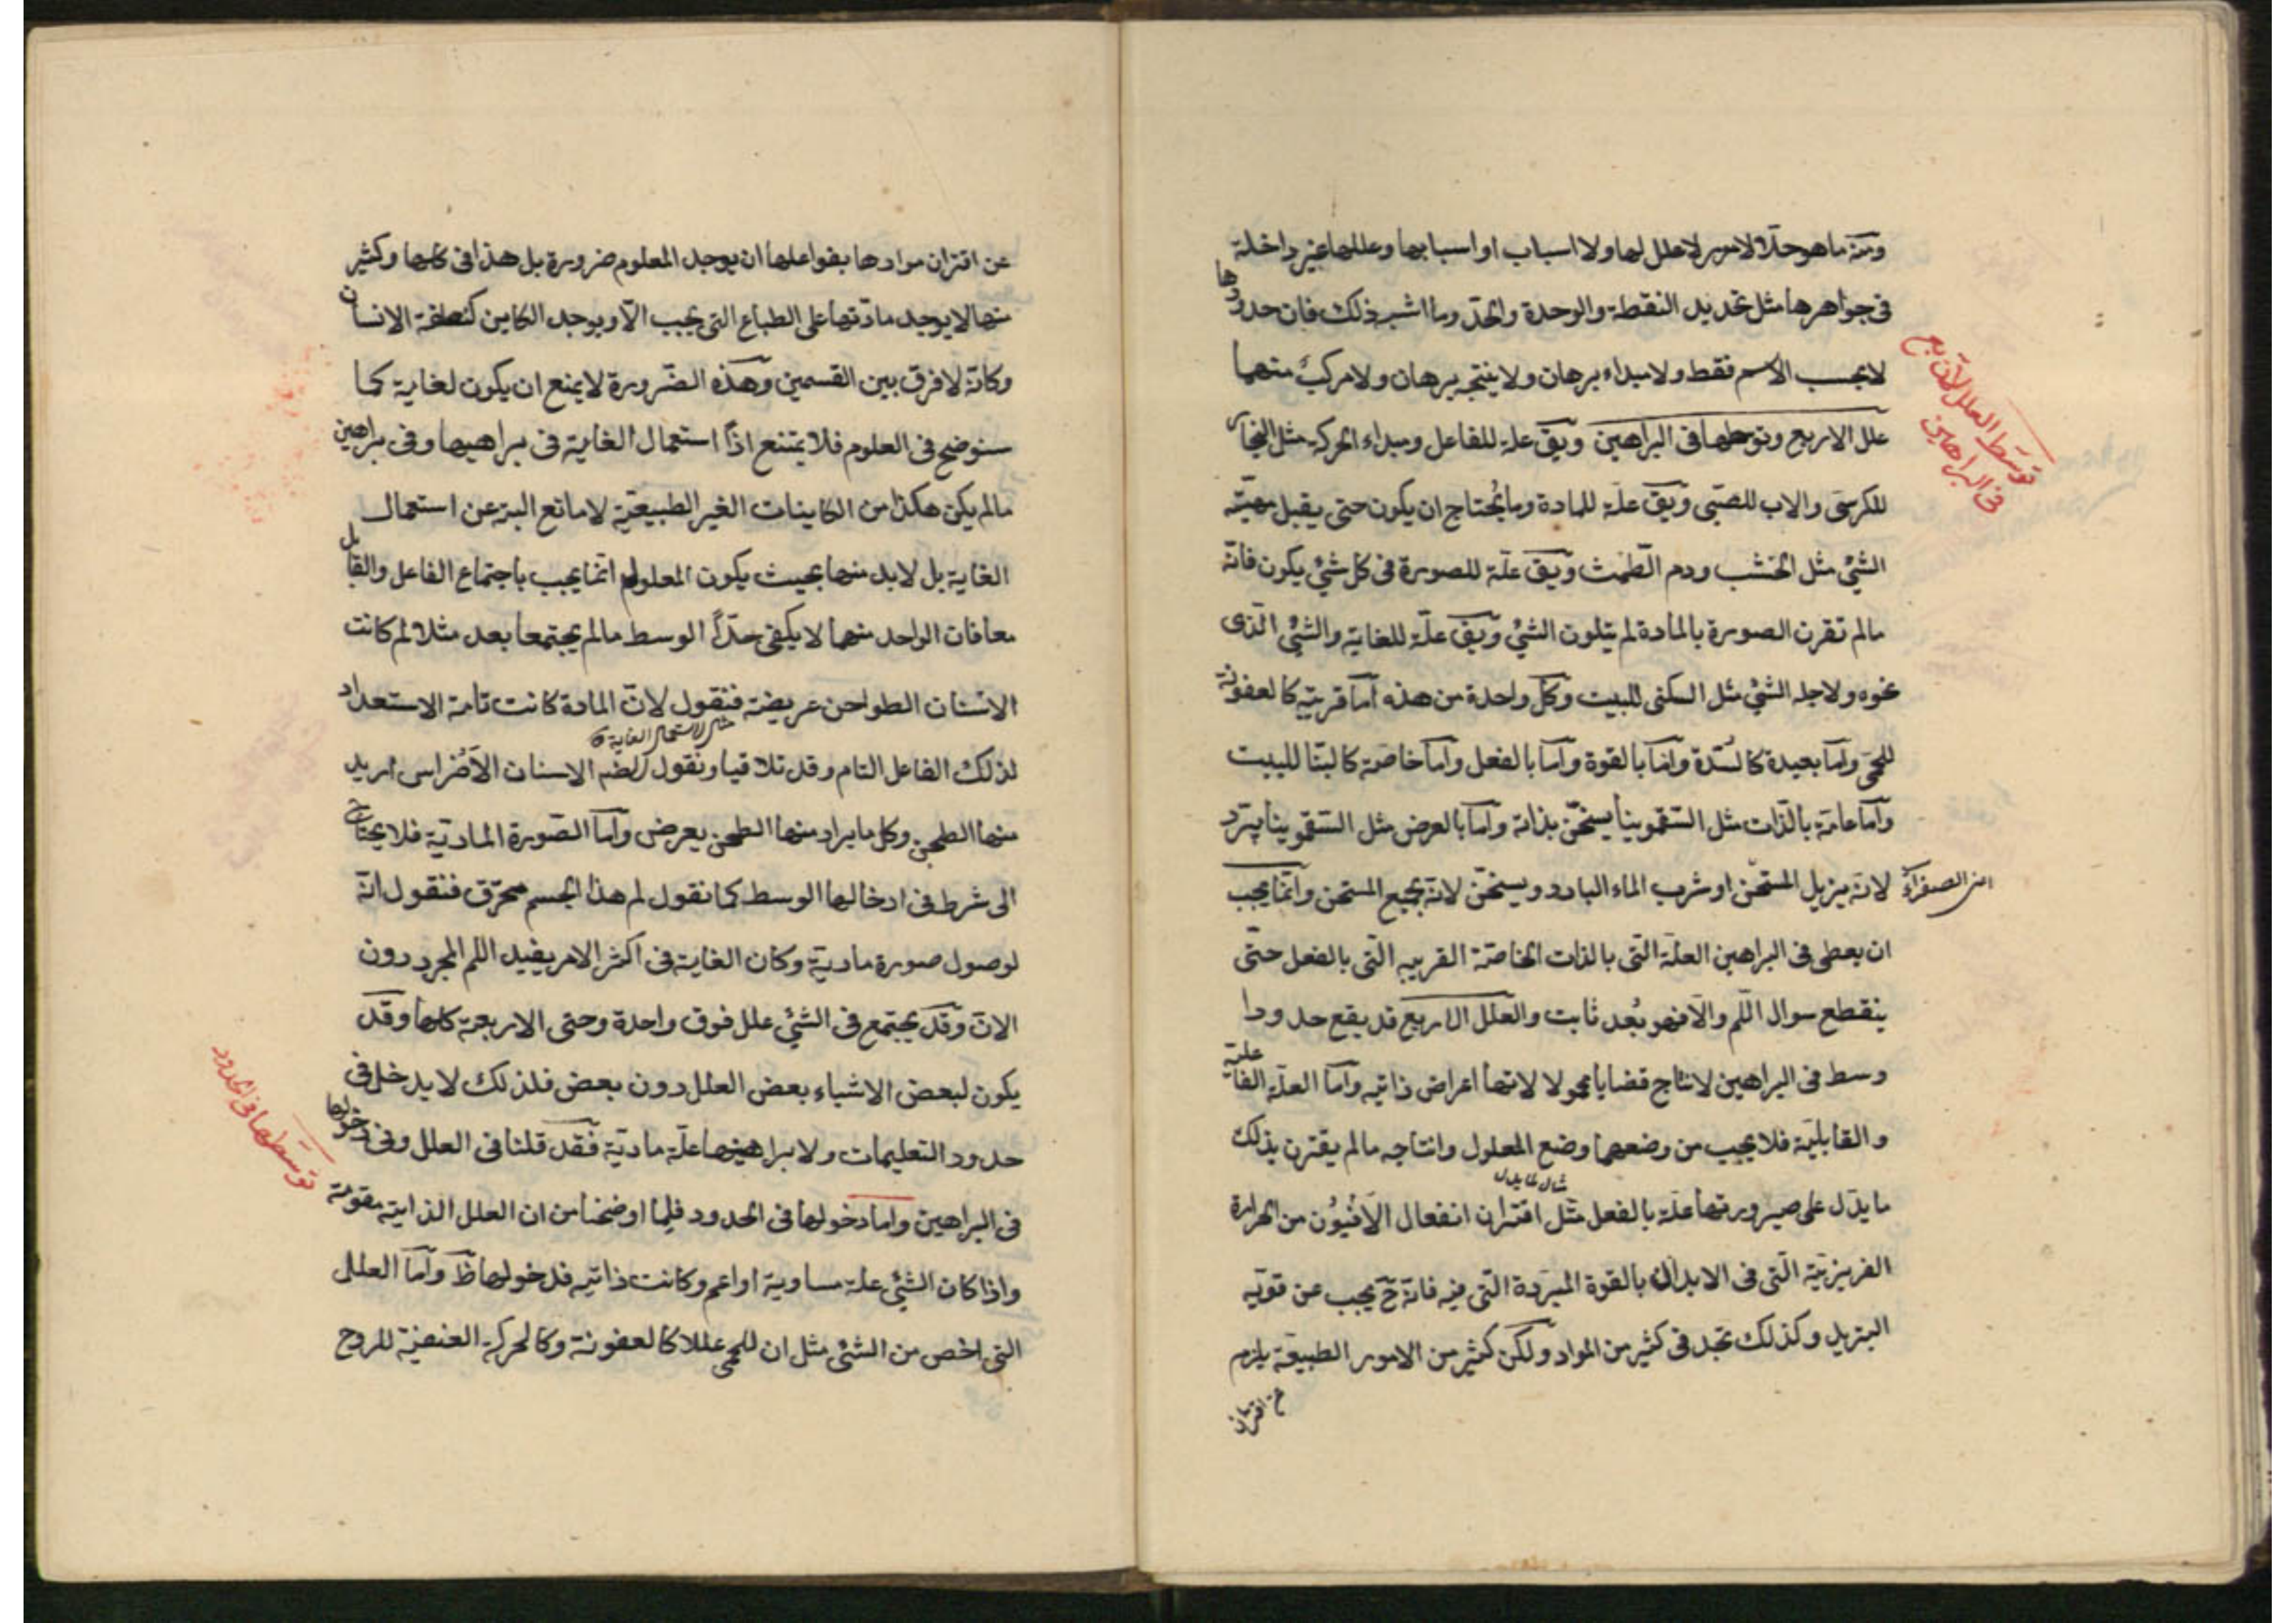 ومنه ما هو حد لامور لا علل لها ولا اسباب او اسبابها وعللها غير داخلة
فى جواهرها مثل تحديد النقطة والوحدة والحد وما اشبه ذلك فان حدودها
لا بحسب الاسم فقط ولا مبداء برهان ولا ينتجه برهان ولا مركب منهما
علل الاربع وتوسطها فى البراهين ويق علة للفاعل ومبداء الحركة مثل النجار
توسط العلل الاربع
فى البراهين
للكرسى والاب للصبى ويق علة للمادة وما يحتاج ان يكون حتى يقبل مهية
الشئ مثل الخشب ودم الطمث ويق علة للصورة فى كل شئ يكون فانه
مالم تقرن الصورة بالمادة لم يتكون الشئ ويق علة للغاية والشئ الذى
نحوه ولاجله الشئ مثل السكنى للبيت وكل واحدة من هذه اما قريبة كالعفونة
للحمى واما بعيدة كالسدة واما بالقوة واما بالفعل واما خاصة كالبنا للبيت
واما عامة بالذات مثل السقمونيا يسخن بذاته واما بالعرض مثل السقمونيا يبرد
لانه يزيل المسخن او شرب الماء البارد ويسخن لانه يجمع المسخن وانما يجب
اى الصفراء
ان يعطى فى البراهين العلة التى بالذات الخاصة القريبه التى بالفعل حتى
ينقطع سوال اللم والا فهو بعد ثابت والعلل الاربع قد يقع حدودا
وسط فى البراهين لانتاج قضايا محمولا لاتها اعراض ذاتيه واما العلة الفاعلية
والقابلية فلا يجب من وضعهما وضع المعلول وانتاجه مالم يقترن بذلك
مثال لما يدل
ما يدل على صيرورتها علة بالفعل مثل اقتران انفعال الافيون من الحرارة
الغريزية التى فى الابدان بالقوة المبردة التى فيه فانه ح يجب عن قوته
التبريد وكذلك تجد فى كثير من المواد ولكن كثير من الامور الطبيعة يلزم
عن اقتران
عن اقتران موادها بفواعلها ان يوجد المعلوم ضرورة بل هذا فى كلها وكثير
منها لا يوجد مادتها على الطباع التى يجب الا ويوجد الكاين كنطفة الانسان
وكانه لا فرق بين القسمين وهذه الضرورة لا يمنع ان يكون لغاية كما
سنوضح فى العلوم فلا يمتنع اذا استعمال الغاية فى براهيها وفى براهين
مالم يكن هكذا من الكاينات الغير الطبيعية لا مانع البتة عن استعمال
الغاية بل لابد منها بحيث يكون المعلول انما يجب باجتماع الفاعل والقابل
معا فان الواحد منهما لا يكفى حدا الوسط مالم يجتمعا بعد مثلا لم كانت
الاسنان الطواحن عريضة فنقول لان المادة كانت تامة الاستعداد
مثال لاستعمال الغاية
لذلك الفاعل التام وقد تلاقيا ونقول الاسنان الاضراس اريد
منها الطحن وكل ما يراد منها الطحن يعرض واما الصورة المادية فلا يحتاج
الى شرط فى ادخالها الوسط كما نقول لم هذا الجسم محرق فنقول انه
لوصول صورة مادية وكان الغاية فى اكثر الامر يفيد اللم المجرد دون
الان وقد يجتمع فى الشئ علل فوق واحدة وحتى الاربعة كلها وقد
يكون لبعض الاشياء بعض العلل دون بعض فلذلك لا يدخل فى
حدود التعليمات ولا براهينها علة مادية فقد قلنا فى العلل وفى دخولها
توسطها فى الحدود
فى البراهين واما دخولها فى الحدود فلما اوضحنا من ان العلل الذاتيه مقومة
واذا كان الشئ علة مساوية او اعم وكانت ذاتيه فدخولها ظ واما العلل
التى اخص من الشئ مثل ان للحمى عللا كالعفونة وكالحركة العنيفة للروح